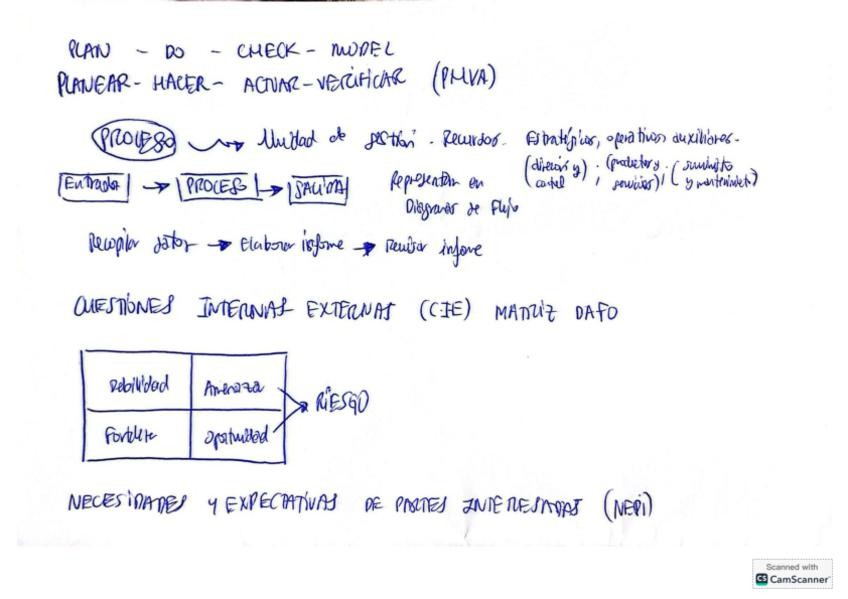 PLAN - DO - CHECK - MODEL
PLANEAR - HACER - ACTUAR - VERIFICAR (PMVA)
PROCESO Unidad de gestión - Recursos. Estratégicos, operativos, auxiliares.
(dirección y control) , (productos y servicios) , (suministro y mantenimiento)
Entrador PROCESO SALIDA Representan en Diagramas de Flujo
Recopilar dator Elaborar informe Revisar informe
CUESTIONES INTERNAS EXTERNAS (CIE) MATRIZ DAFO
Debilidad Amenaza
RIESGO
Fortaleza Oportunidad
NECESIDADES Y EXPECTATIVAS DE PARTES INTERESADAS (NEPI)
Scanned with
CS CamScanner